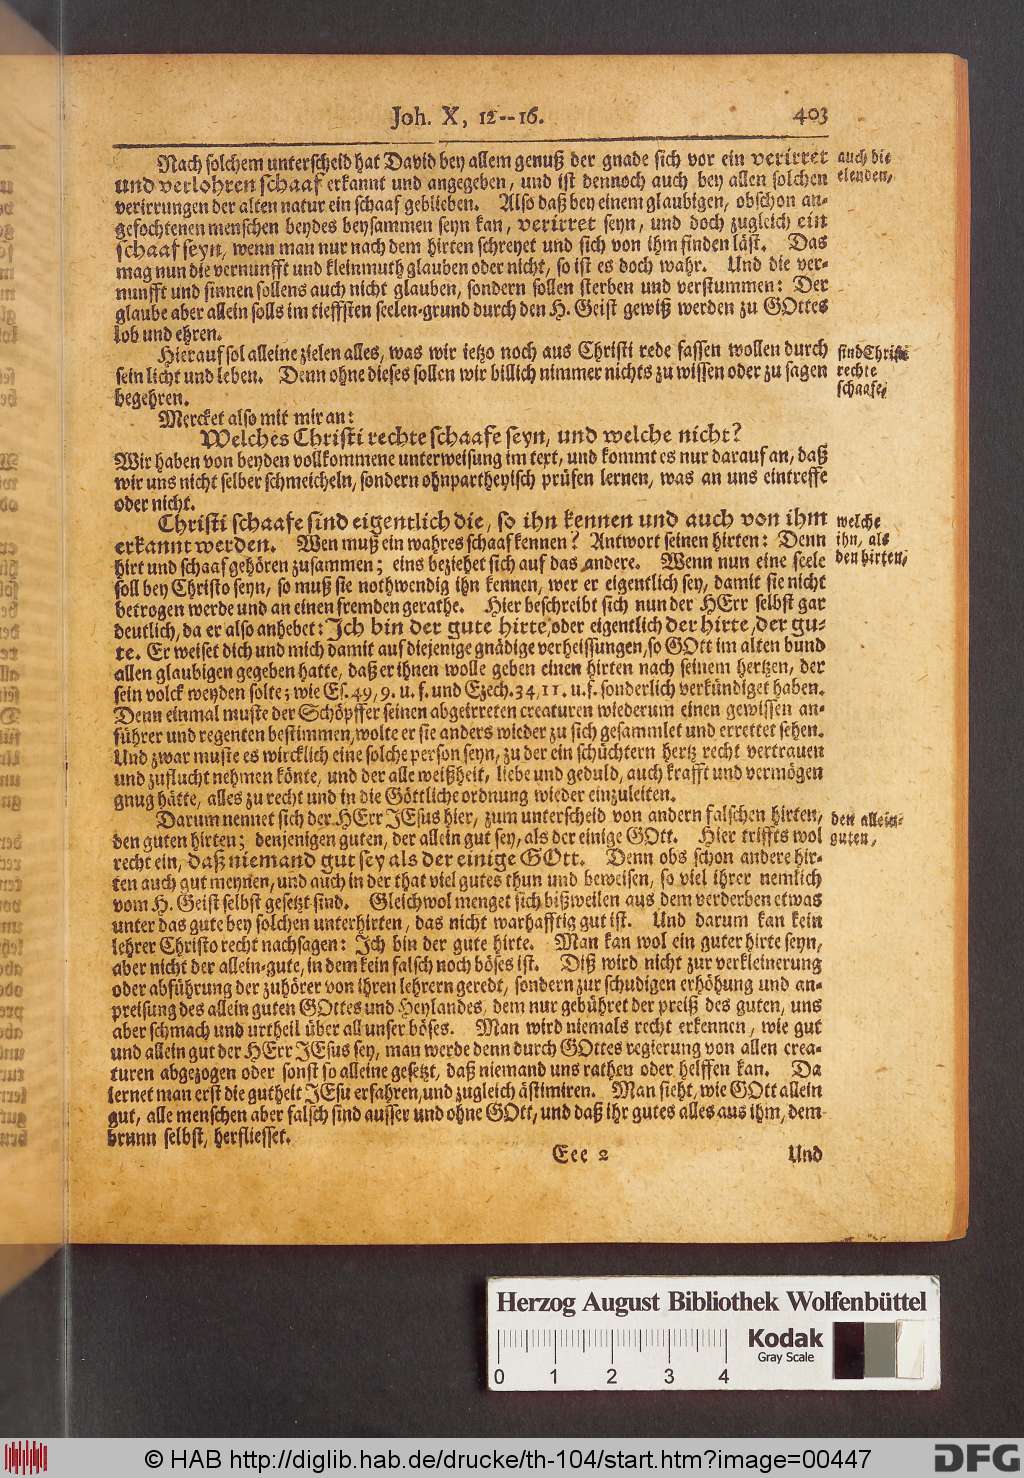 Joh. X, 12--16. 403
Nach solchem unterscheid hat David bey allem genuß der gnade sich vor ein verirret
und verlohren schaaf erkannt und angegeben, und ist dennoch auch bey allen solchen
verirrungen der alten natur ein schaaf geblieben. Also daß bey einem glaubigen, obschon an-
gefochtenen menschen beydes beysammen seyn kan, verirret seyn, und doch zugleich ein
schaaf seyn, wenn man nur nach dem hirten schreyet und sich von ihm finden läst. Das
mag nun die vernunfft und kleinmuth glauben oder nicht, so ist es doch wahr. Und die ver-
nunfft und sinnen sollens auch nicht glauben, sondern sollen sterben und verstummen: Der
glaube aber allein solls im tieffsten seelen-grund durch den H. Geist gewiß werden zu GOttes
lob und ehren.
auch die
elenden,
Hierauf sol alleine zielen alles, was wir ietzo noch aus Christi rede fassen wollen durch
sein licht und leben. Denn ohne dieses sollen wir billich nimmer nichts zu wissen oder zu sagen
begehren.
sind Christi
rechte
schaafe,
Mercket also mit mir an:
Welches Christi rechte schaafe seyn, und welche nicht?
Wir haben von beyden vollkommene unterweisung im text, und kommt es nur darauf an, daß
wir uns nicht selber schmeicheln, sondern ohnpartheyisch prüfen lernen, was an uns eintreffe
oder nicht.
Christi schaafe sind eigentlich die, so ihn kennen und auch von ihm
erkannt werden. Wen muß ein wahres schaaf kennen? Antwort seinen hirten: Denn
hirt und schaaf gehören zusammen; eins beziehet sich auf das andere. Wenn nun eine seele
soll bey Christo seyn, so muß sie nothwendig ihn kennen, wer er eigentlich sey, damit sie nicht
betrogen werde und an einen fremden gerathe. Hier beschreibt sich nun der HErr selbst gar
deutlich, da er also anhebet: Ich bin der gute hirte, oder eigentlich der hirte, der gu-
te. Er weiset dich und mich damit auf diejenige gnädige verheissungen, so GOtt im alten bund
allen glaubigen gegeben hatte, daß er ihnen wolle geben einen hirten nach seinem hertzen, der
sein volck weyden solte; wie Es. 49, 9. u. f. und Ezech. 34, 11. u. f. sonderlich verkündiget haben.
Denn einmal muste der Schöpffer seinen abgeirreten creaturen wiederum einen gewissen an-
führer und regenten bestimmen, wolte er sie anders wieder zu sich gesammlet und errettet sehen.
Und zwar muste es wircklich eine solche person seyn, zu der ein schüchtern hertz recht vertrauen
und zuflucht nehmen könte, und der alle weißheit, liebe und geduld, auch krafft und vermögen
gnug hätte, alles zu recht und in die Göttliche ordnung wieder einzuleiten.
welche
ihn, als
den hirten,
Darum nennet sich der HErr JEsus hier, zum unterscheid von andern falschen hirten,
den guten hirten; denjenigen guten, der allein gut sey, als der einige GOtt. Hier triffts wol
recht ein, daß niemand gut sey als der einige GOtt. Denn obs schon andere hir-
ten auch gut meynen, und auch in der that viel gutes thun und beweisen, so viel ihrer nemlich
vom H. Geist selbst gesetzt sind. Gleichwol menget sich bißweilen aus dem verderben etwas
unter das gute bey solchen unterhirten, das nicht warhafftig gut ist. Und darum kan kein
lehrer Christo recht nachsagen: Ich bin der gute hirte. Man kan wol ein guter hirte seyn,
aber nicht der allein-gute, in dem kein falsch noch böses ist. Diß wird nicht zur verkleinerung
oder abführung der zuhörer von ihren lehrern geredt, sondern zur schudigen erhöhung und an-
preisung des allein guten GOttes und Heylandes, dem nur gebühret der preiß des guten, uns
aber schmach und urtheil über all unser böses. Man wird niemals recht erkennen, wie gut
und allein gut der HErr JEsus sey, man werde denn durch GOttes regierung von allen crea-
turen abgezogen oder sonst so alleine gesetzt, daß niemand uns rathen oder helffen kan. Da
lernet man erst die gutheit JEsu erfahren, und zugleich ästimiren. Man sieht, wie GOtt allein
gut, alle menschen aber falsch sind ausser und ohne GOtt, und daß ihr gutes alles aus ihm, dem
brunn selbst, herfliesset.
den allein-
guten,
Eee 2 Und
Herzog August Bibliothek Wolfenbüttel
Kodak
Gray Scale
0 1 2 3 4
© HAB http://diglib.hab.de/drucke/th-104/start.htm?image=00447
DFG